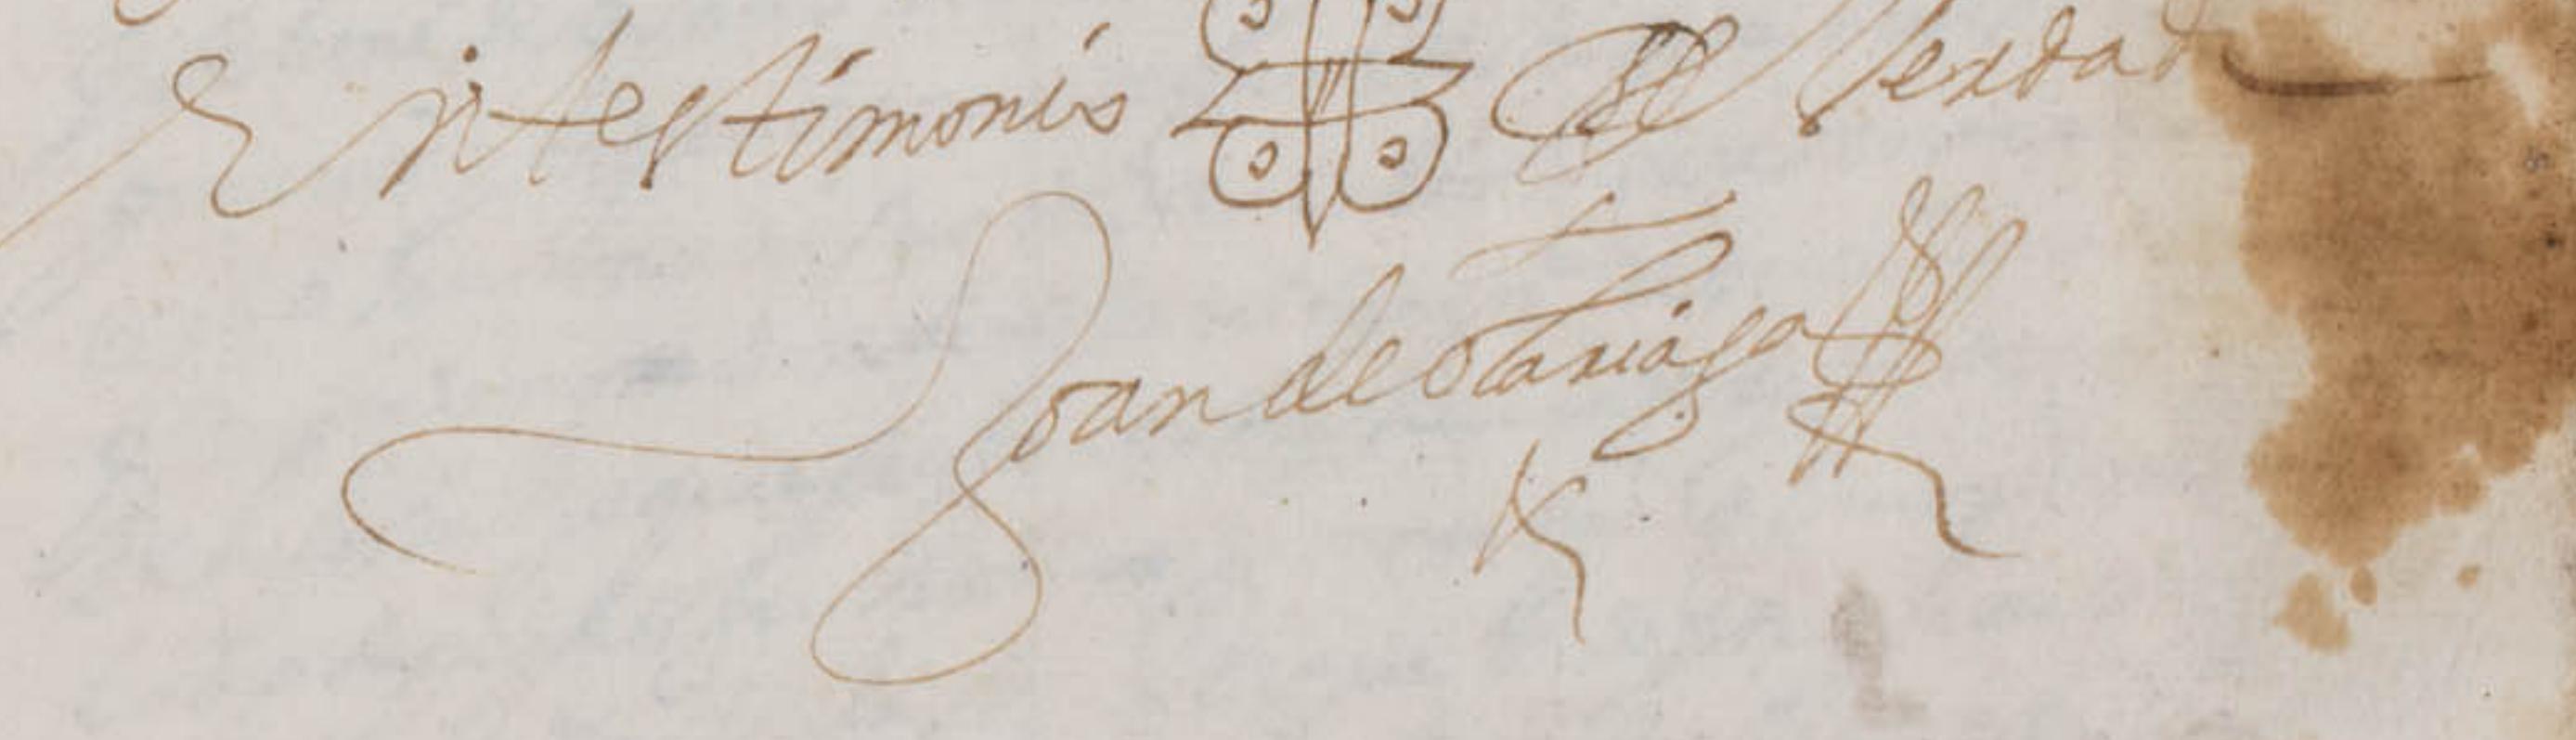 En testimonio de verdad
Joan de Olariaga